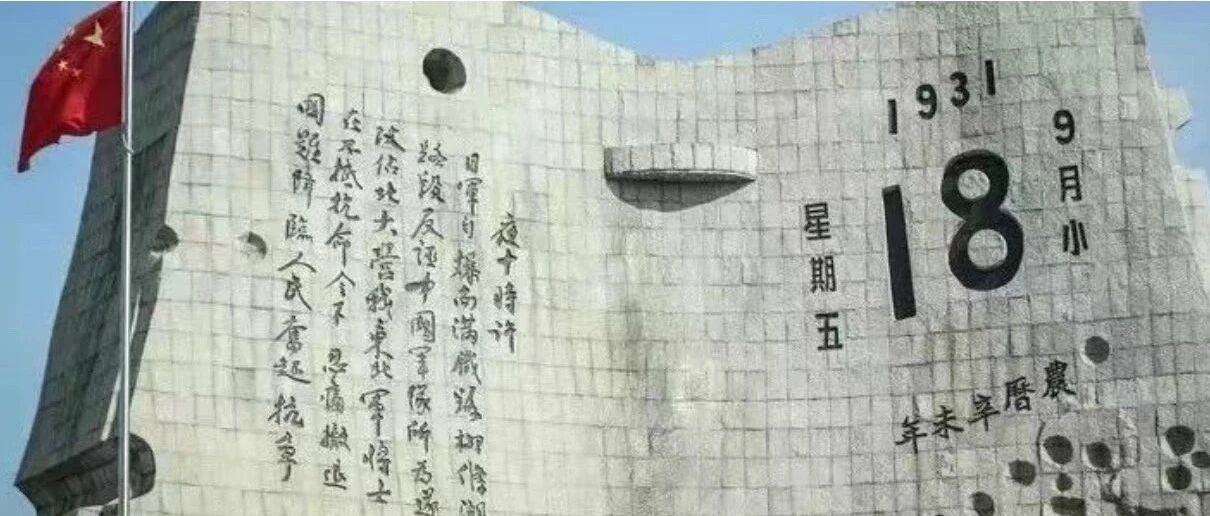 1931
9月小
18
星期五
農曆辛未年
夜十時許
日軍自爆南滿鐵路柳條湖
路段反誣中國軍隊所為遂
攻佔北大營我東北軍將士
在不抵抗命令下忍痛撤退
國難降臨人民奮起抗爭